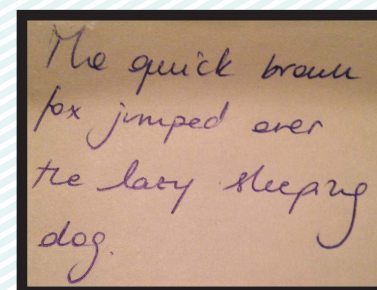 The quick brown
fox jumped over
the lazy sleeping
dog.